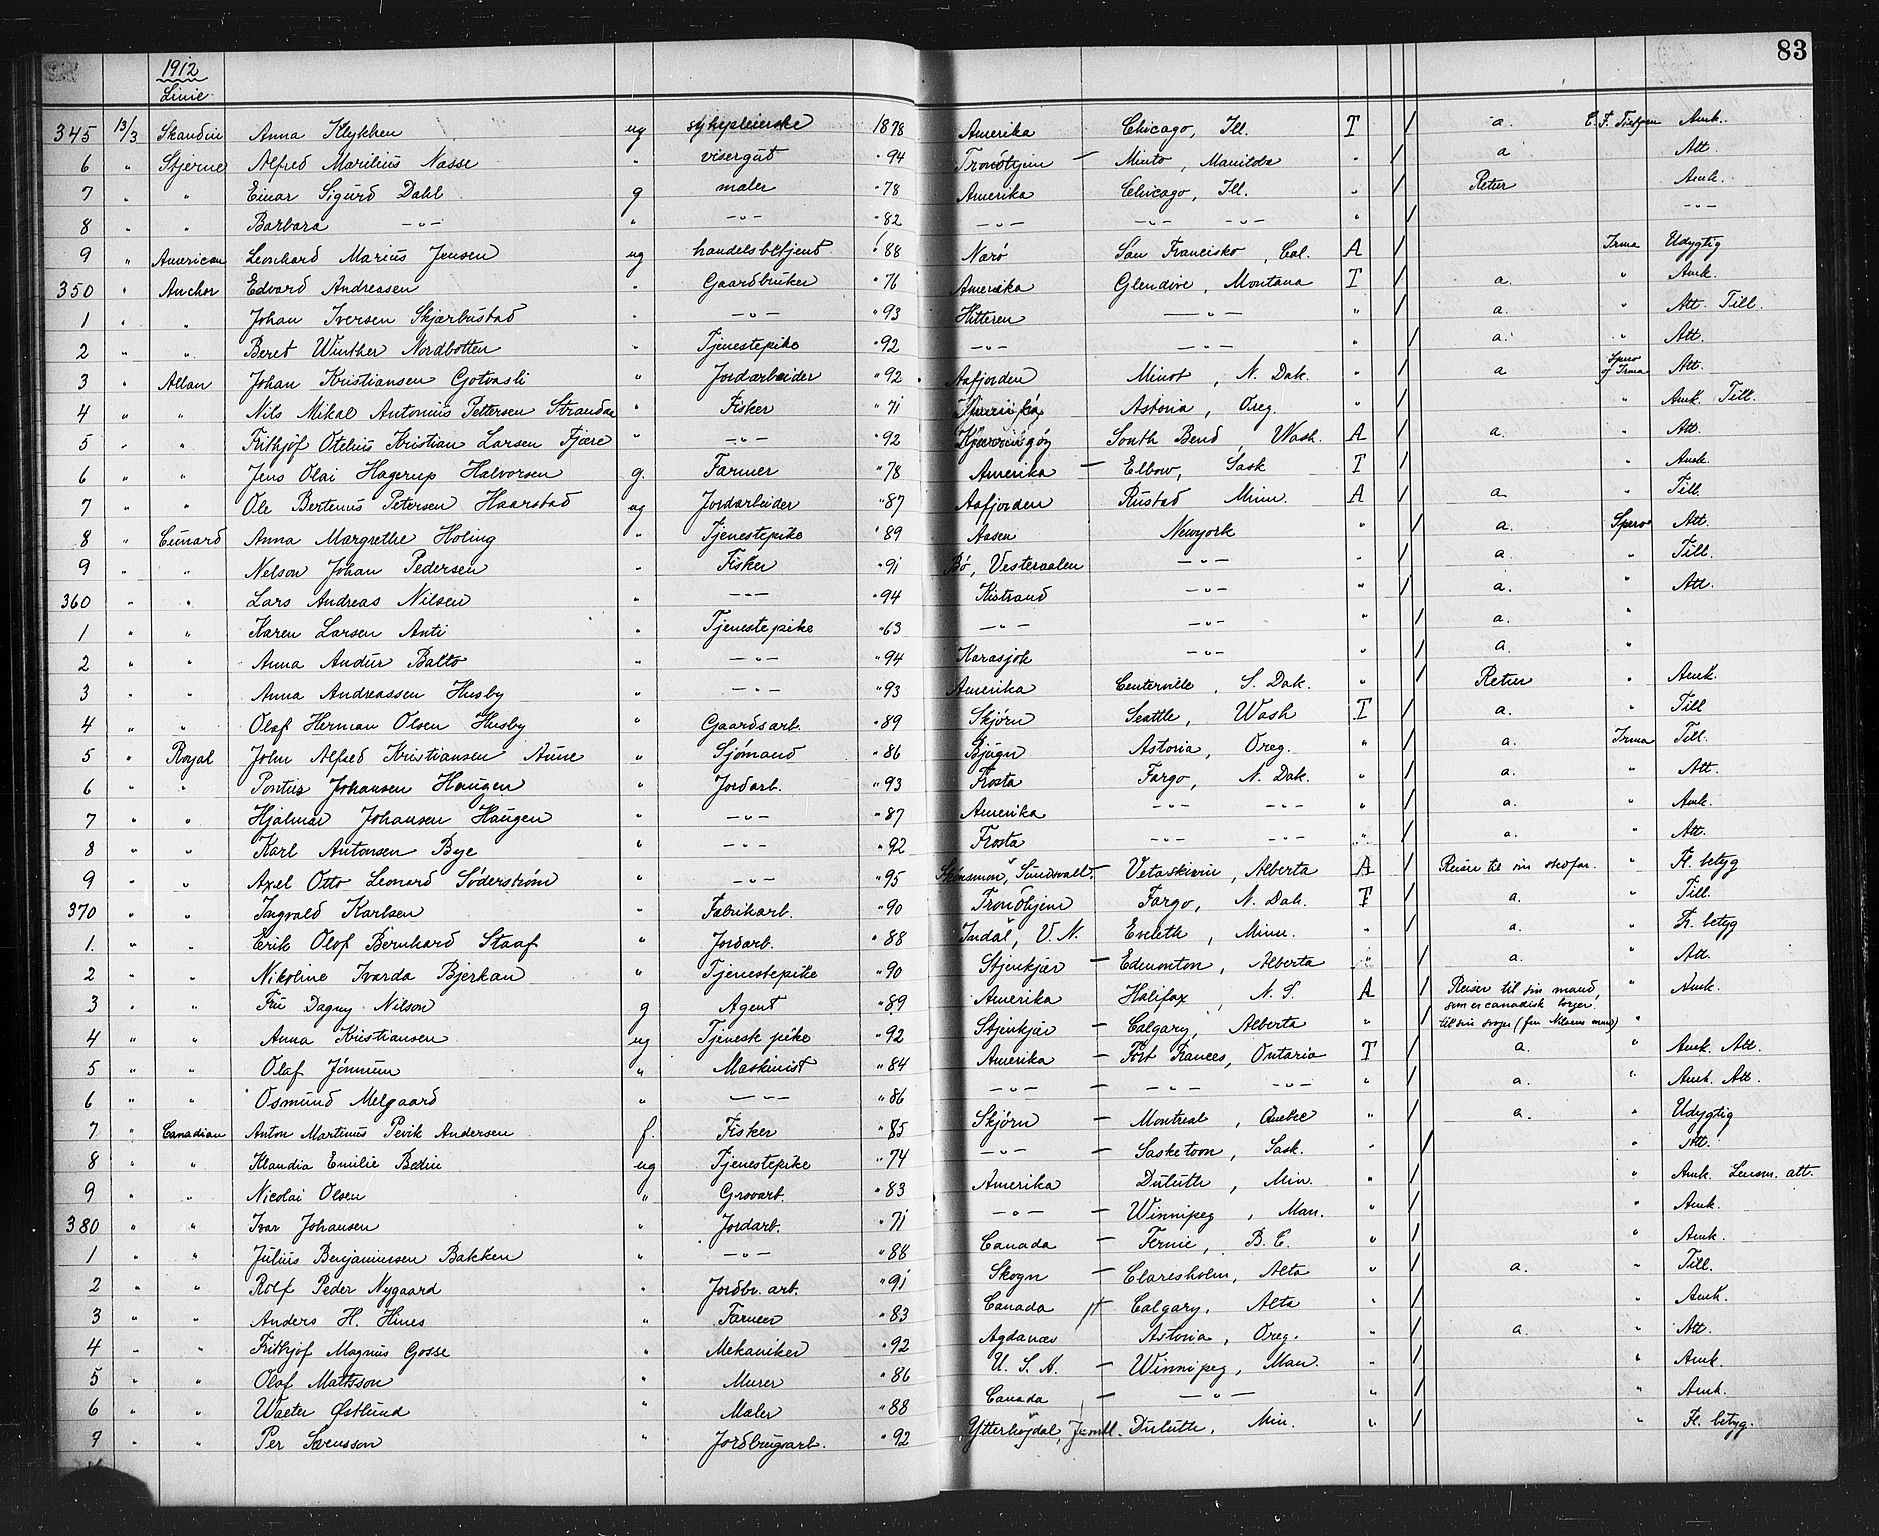 83
1912
Linie
345 13/3 Skandin Anna Kleykken ug sykepleierske 1878 Amerika Chicago, Ill. T / a. C. F. Tietgen Amk.
6 " Stjerne Alfred Marilius Nasse " visergut " 94 Trondhjem — Minto, Manitoba " / a Att.
7 " " Einar Sigurd Dahl g maler " 78 Amerika Chicago, Ill. " / Retur Amk.
8 " " Barbara —"— " —"— " 82 —"— —"— —"— " / —"—
9 " American Leonhard Marius Jensen ug handelsbetjent " 88 Nærö San Francisko, Cal. A / Irma Udygtig
350 " Anchor Edvard Andreasen " Gaardbruker " 76 Amerika Glendive, Montana T / a. " Amk.
1 " " Johan Iversen Skjærbustad " —"— " 93 Hitteren —"— " / a. " Att. Till.
2 " " Beret Winther Nordbotten " Tjenestepike " 92 —"— —"— " / a. " Att.
3 " Allan Johan Kristiansen Gotvasli " Jordarbeider " 92 Aafjorden Minot, N. Dak. " / a Spero og Irma Att.
4 " " Nils Mikal Antonius Pettersen Strandaa " Fisker " 71 Astoria, Oreg. " / " Amk. Till.
5 " " Frithjof Otelius Kristian Larsen Fjære " —"— " 92 Kjerringöy South Bend, Wash. A / a. " Att.
6 " " Jens Olai Hagerup Halvorsen g. Farmer " 78 Amerika — Elbow, Sask T / " Amk.
7 " " Ole Bertenus Petersen Haarstad ug Jordarbeider " 87 Aafjorden Rustad Minn. A / a " Till.
8 " Cunard Anna Margrethe Holing " Tjenestepike " 89 Aasen Newyork " / a. Spero Att.
9 " " Nelson Johan Pedersen " Fisker " 91 Bö, Vesteraalen —"— " / a. " Till.
360 " " Lars Andreas Nilsen " —"— " 94 Kistrand —"— " / a. " Att.
1 " " Karen Larsen Anti " Tjenestepike " 63 —"— —"— " / a. "
2 " " Anna Andur Balto " —"— " 94 Karasjok —"— " / a. "
3 " " Anna Andreassen Husby " —"— " 93 Amerika Centerville, S. Dak. " / Retur " Amk.
4 " " Olaf Herman Olsen Husby " Gaardsarb. " 89 Skjörn Seattle, Wash T / a. " Till
5 " Royal John Alfred Kristiansen Aune " Sjömand " 86 Bjugn Astoria, Oreg. " / a. Irma Till.
6 " " Pontus Johansen Haugen " Jordarb. " 93 Frosta Fargo, N. Dak. " / a. " Att.
7 " " Hjalmar Johansen Haugen " —"— " 87 Amerika —"— —"— " / a. " Amk.
8 " " Karl Antonsen Bye " —"— " 92 Frosta —"— —"— " / a. " Att.
9 " " Axel Otto Leonard Söderström " —"— " 95 Skönsmon, Sundsvall — Vetaskivin, Alberta A / Reiser til sin stedfar. " Fl. betyg
370 " " Ingvald Karlsen " Fabrikarb. " 90 Trondhjem Fargo, N. Dak. T / a. " Till.
1. " " Erik Olof Bernhard Staaf " Jordarb. " 88 Indal, V. N. Eveleth, Minn. " / a. " Fl. betyg
2 " " Nikoline Ivarda Bjerkan " Tjenestepike " 90 Stjenkjær — Edmonton, Alberta " / a. " Att.
3 " " Fru Dagny Nilson g Agent " 89 Amerika Halifax, N. S. A / Reiser til sin mand som er canadisk borger. " Amk.
4 " " Anna Kristiansen ug Tjenestepike " 92 Stjenkjær — Calgary, Alberta " / til sin svoger (fru Nilsons mand) "
5 " " Olaf Jönnum " Maskinist " 84 Amerika — Fort Frances, Ontario T / a. " Amk. Att.
6 " " Osmund Melgaard " —"— " 86 —"— — —"— —"— " / a. " Amk. Att.
7 " Canadian Anton Martinus Pevik Andersen f. Fisker " 85 Skjörn — Montreal, Quebec " / a. " Udygtig
8 " " Klandia Emilie Betin ug Tjenestepike " 74 —"— — Sasketoon, Sask. " / " Att.
9 " " Nicolai Olsen " Grovarb. " 83 Amerika Duluth, Min. " / " Amk. Lensm. att.
380 " " Ivar Johansen " Jordarb. " 71 —"— — Winnipeg, Man. " / " Amk.
1 " " Julius Benjaminsen Bakken " —"— " 88 Canada — Fernie, B. C. " / " Amk.
2 " " Rolf Peder Nygaard " Jordbr. arb. " 91 Skogn — Claresholm, Alta " / a. " Till.
3 " " Anders H. Hines " Farmer " 83 Canada Calgary, Alta " / " Amk.
4 " " Frithjof Magnus Gosse " Mekaniker " 92 Agdanæs Astoria, Oreg. " / a. " Att.
5 " " Olaf Mattsson " Murer " 86 U. S. A. — Winnipeg, Man. " / " Amk.
6 " " Walter Östlund " Maler " 88 Canada — —"— " / " Amk.
7 " " Per Svensson " Jordbrugsarb. " 92 Ytterhogdal, Jemtl. Duluth, Min. " / " Fl. betyg.